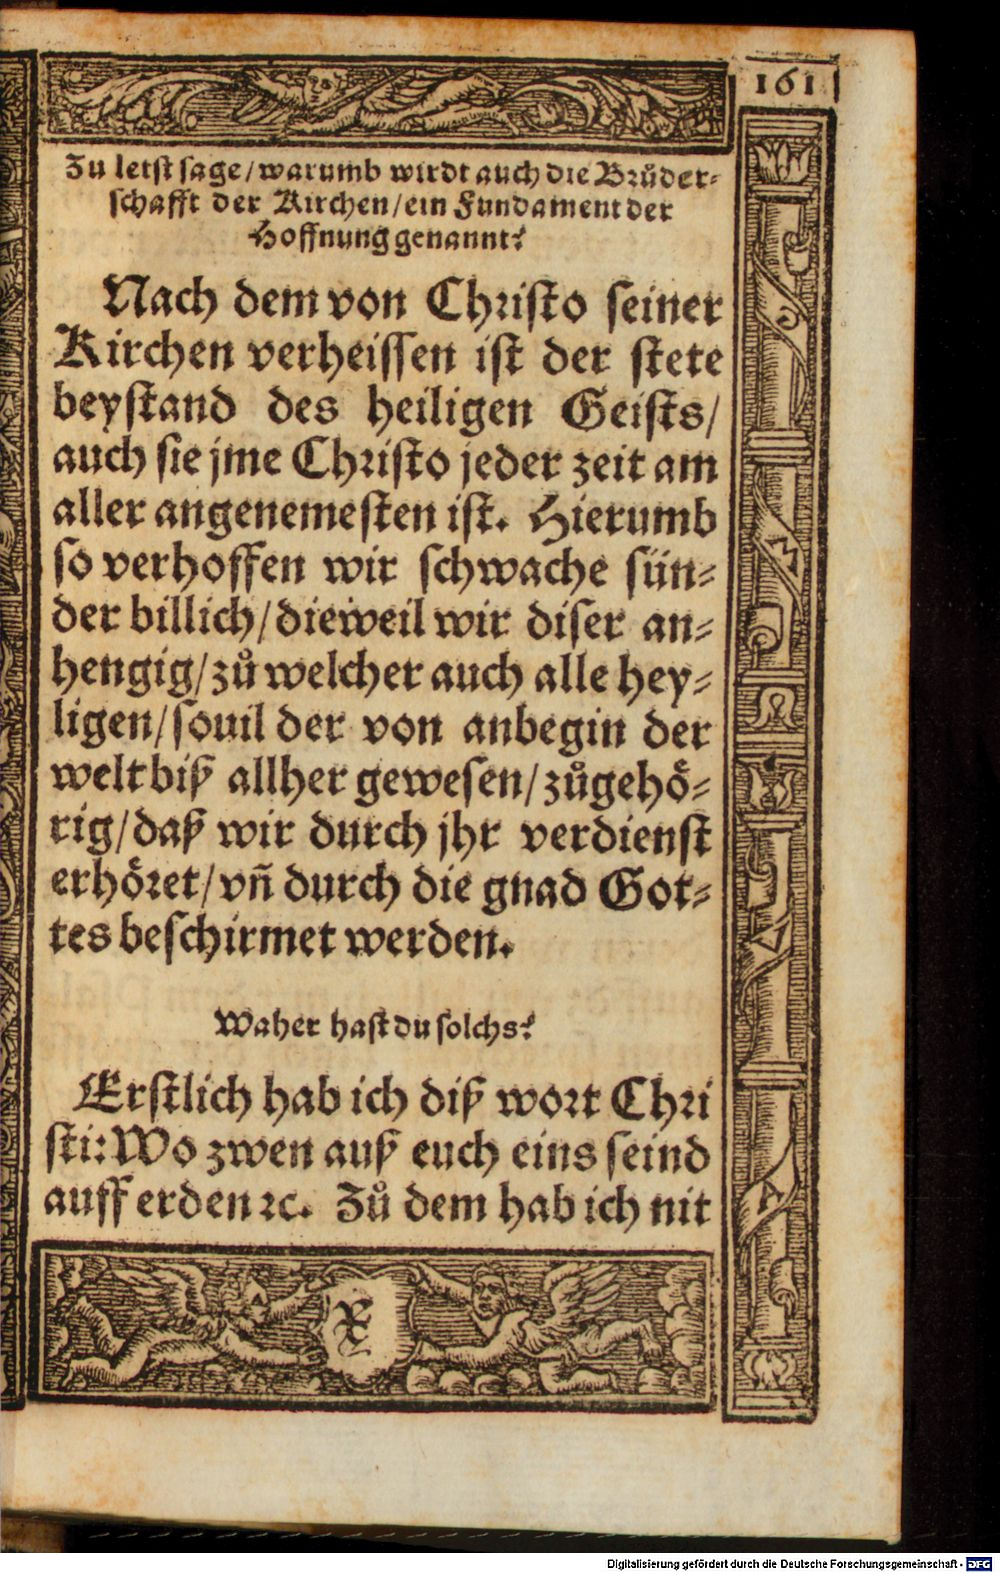 161
Zu letst sage/warumb wirdt auch die Brůder-
schafft der Kirchen/ein Fundament der
Hoffnung genannt?
Nach dem von Christo seiner
Kirchen verheissen ist der stete
beystand des heiligen Geists/
auch sie jme Christo jeder zeit am
aller angenemesten ist. Hierumb
so verhoffen wir schwache sün-
der billich/dieweil wir diser an-
hengig/zů welcher auch alle hey-
ligen/souil der von anbegin der
welt biß allher gewesen/zůgehö-
rig/daß wir durch jhr verdienst
erhöret/vñ durch die gnad Got-
tes beschirmet werden.
Waher hast du solchs?
Erstlich hab ich diß wort Chri
sti: Wo zwen auß euch eins seind
auff erden ꝛc. Zů dem hab ich nit
Digitalisierung gefördert durch die Deutsche Forschungsgemeinschaft - DFG